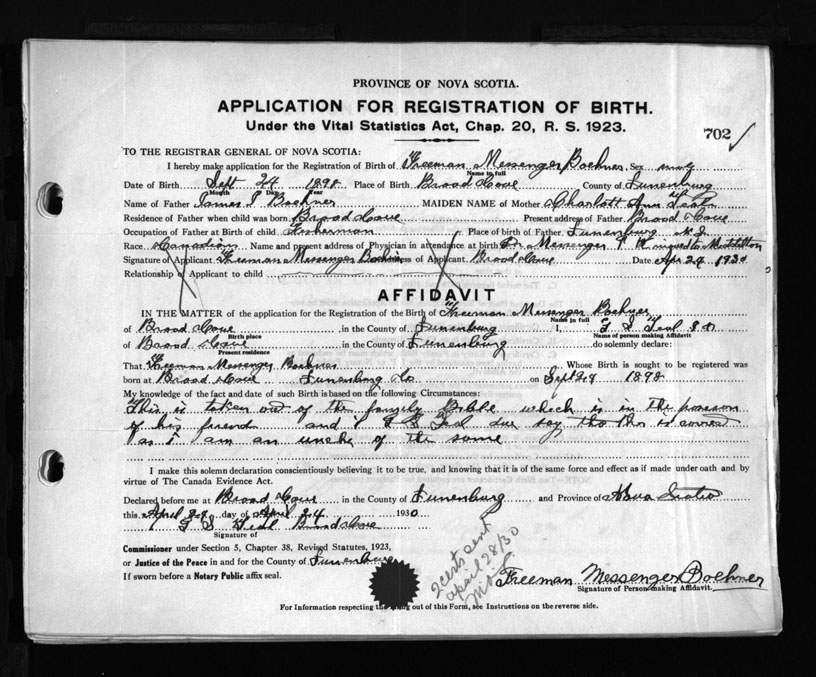 PROVINCE OF NOVA SCOTIA.
APPLICATION FOR REGISTRATION OF BIRTH.
Under the Vital Statistics Act, Chap. 20, R. S. 1923.
702 ✓
TO THE REGISTRAR GENERAL OF NOVA SCOTIA:
I hereby make application for the Registration of Birth of Freeman Messenger Boehner, Sex
Name in full
Date of Birth Sept 24 1898 Place of Birth Broad Cove County of Lunenburg
Month Day Year
Name of Father James Boehner MAIDEN NAME of Mother Charlott Ann Teal
Residence of Father when child was born Broad Cove Present address of Father Broad Cove
Occupation of Father at Birth of child Fisherman Place of birth of Father Lunenburg
Race Canadian Name and present address of Physician in attendance at birth Dr Messenger
Signature of Applicant Freeman Messenger Boehner of Applicant Broad Cove Date Apr 24 1930
Relationship of Applicant to child
AFFIDAVIT
IN THE MATTER of the application for the Registration of the Birth of Freeman Messenger Boehner
Name in full
of Broad Cove in the County of Lunenburg I, G S Teal
Birth place Name of person making Affidavit
of Broad Cove in the County of Lunenburg do solemnly declare:
Present residence
That Freeman Messenger Boehner Whose Birth is sought to be registered was
born at Broad Cove Lunenburg Co on Sept 24 1898
My knowledge of the fact and date of such Birth is based on the following Circumstances:
This is taken out of the family Bible which is in the
of his and I G S Teal say this is
as I am an uncle of the same
I make this solemn declaration conscientiously believing it to be true, and knowing that it is of the same force and effect as if made under oath and by
virtue of The Canada Evidence Act.
Declared before me at Broad Cove in the County of Lunenburg and Province of Nova Scotia
this April 24 day of April 24 1930
G S Teal Broad Cove
Signature of
Commissioner under Section 5, Chapter 38, Revised Statutes, 1923,
or Justice of the Peace in and for the County of Lunenburg
If sworn before a Notary Public affix seal.
2 certs sent
april 28/30
Freeman Messenger Boehner
Signature of Person making Affidavit.
For Information respecting the out of this Form, see Instructions on the reverse side.